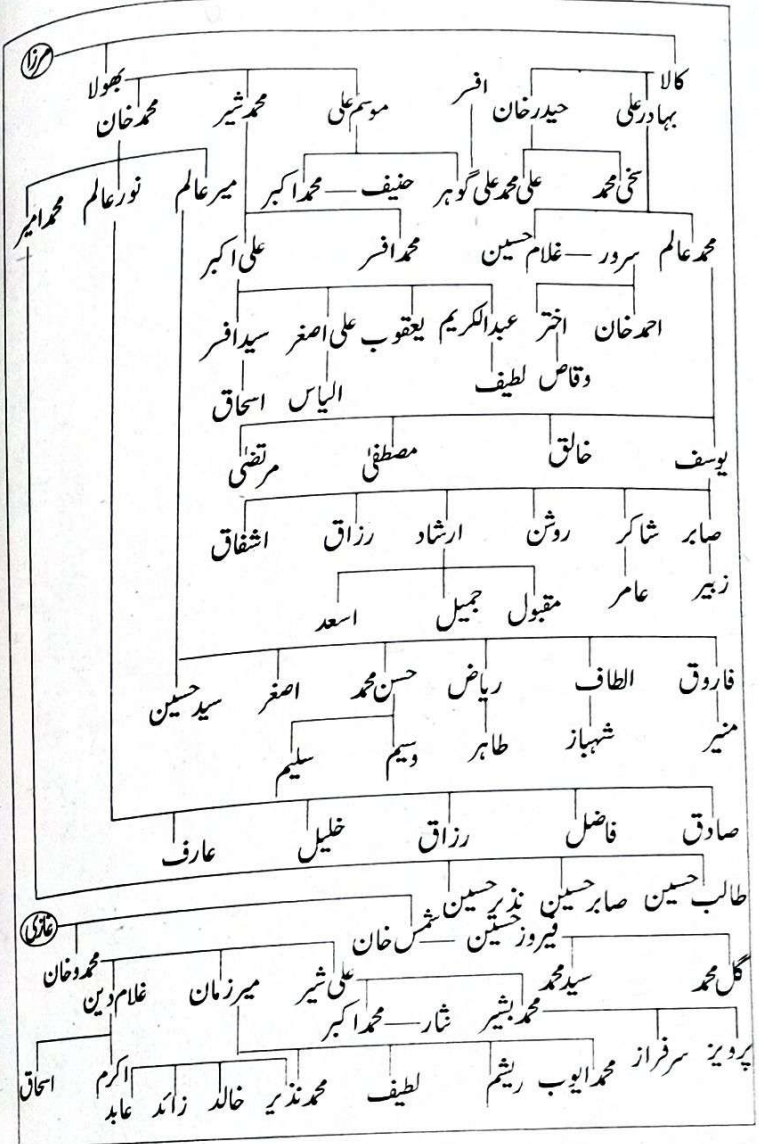 مرزا
کالا بھولا
بہادر علی حیدر خان افسر موسم علی محمد شیر محمد خان
سخی محمد علی محمد علی گوہر حنیف — محمد اکبر میر عالم نور عالم محمد امیر
محمد عالم سرور — غلام حسین محمد افسر علی اکبر
احمد خان اختر عبدالکریم یعقوب علی اصغر سید افسر
وقاص لطیف الیاس اسحاق
یوسف خالق مصطفیٰ مرتضیٰ
صابر شاکر روشن ارشاد رزاق اشفاق
زبیر عامر مقبول جمیل اسعد
فاروق الطاف ریاض حسن محمد اصغر سید حسین
منیر شہباز طاہر وسیم سلیم
صادق فاضل رزاق خلیل عارف
طالب حسین صابر حسین نذیر حسین
غازی
فیروز حسین — شمس خان محمدو خان
گل محمد سید محمد علی شیر میر زمان غلام دین
محمد بشیر نثار — محمد اکبر
پرویز سرفراز محمد ایوب ریشم لطیف محمد نذیر خالد زائد عابد اکرم اسحاق